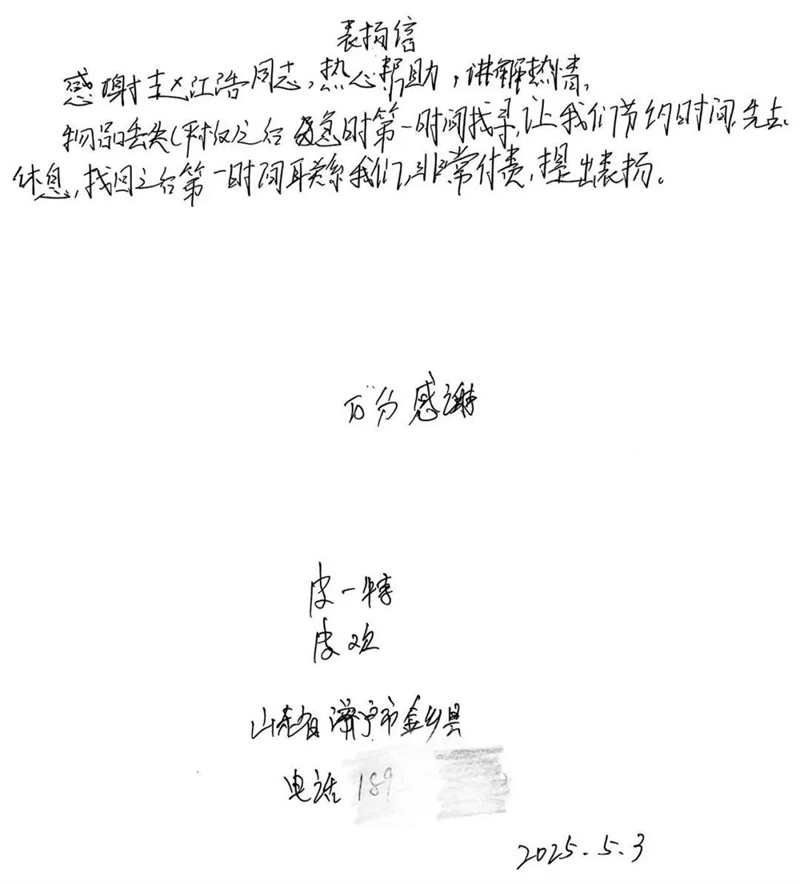 表扬信
感谢赵江浩同志,热心帮助,讲解热情,
物品丢失()之后 及时第一时间找寻,让我们节约时间,先去
休息,找回之后第一时间联系我们,非常付责,提出表扬。
万分感谢
皮一特
皮欢
山东省济宁市金乡县
电话 189
2025.5.3